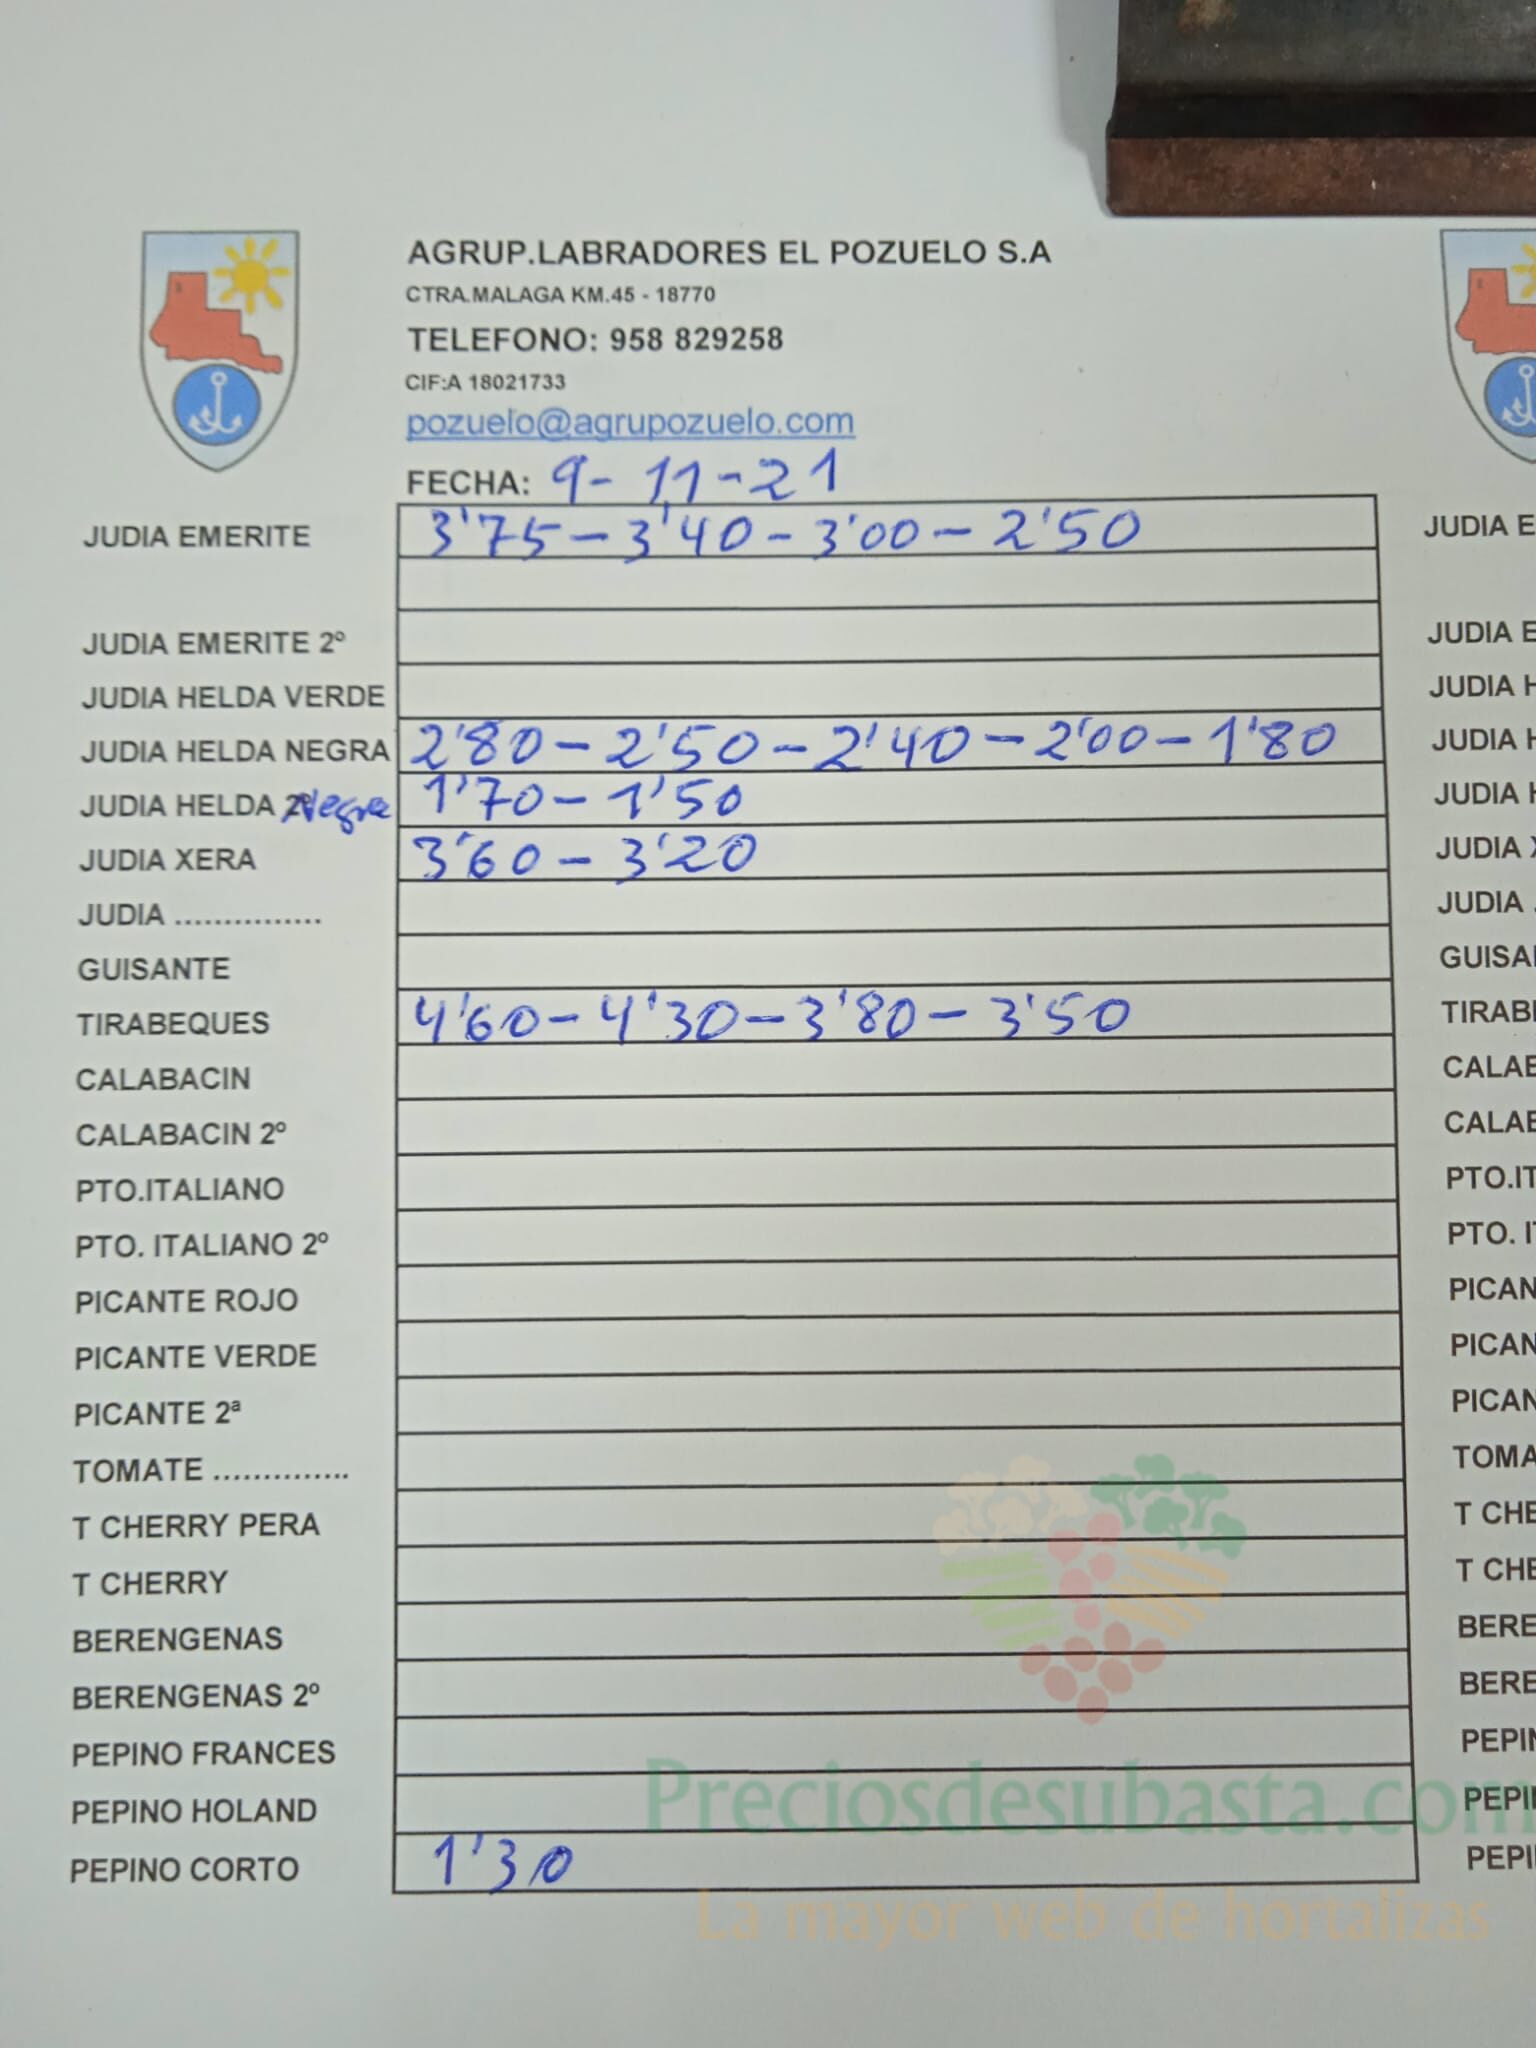 AGRUP.LABRADORES EL POZUELO S.A
CTRA.MALAGA KM.45 - 18770
TELEFONO: 958 829258
CIF:A 18021733
pozuelo@agrupozuelo.com
FECHA: 9-11-21
JUDIA EMERITE 3'75-3'40-3'00-2'50
JUDIA EMERITE 2º
JUDIA HELDA VERDE
JUDIA HELDA NEGRA 2'80-2'50-2'40-2'00-1'80
JUDIA HELDA 2ª Negra 1'70-1'50
JUDIA XERA 3'60-3'20
JUDIA ...............
GUISANTE
TIRABEQUES 4'60-4'30-3'80-3'50
CALABACIN
CALABACIN 2º
PTO.ITALIANO
PTO. ITALIANO 2º
PICANTE ROJO
PICANTE VERDE
PICANTE 2ª
TOMATE ..............
T CHERRY PERA
T CHERRY
BERENGENAS
BERENGENAS 2º
PEPINO FRANCES
PEPINO HOLAND
PEPINO CORTO 1'30
JUDIA E
JUDIA E
JUDIA H
JUDIA H
JUDIA H
JUDIA X
JUDIA .
GUISA
TIRAB
CALAB
CALAB
PTO.IT
PTO. IT
PICAN
PICAN
PICAN
TOMA
T CHE
T CHE
BERE
BERE
PEPIN
PEPI
PEPI
Preciosdesubasta.com
La mayor web de hortalizas